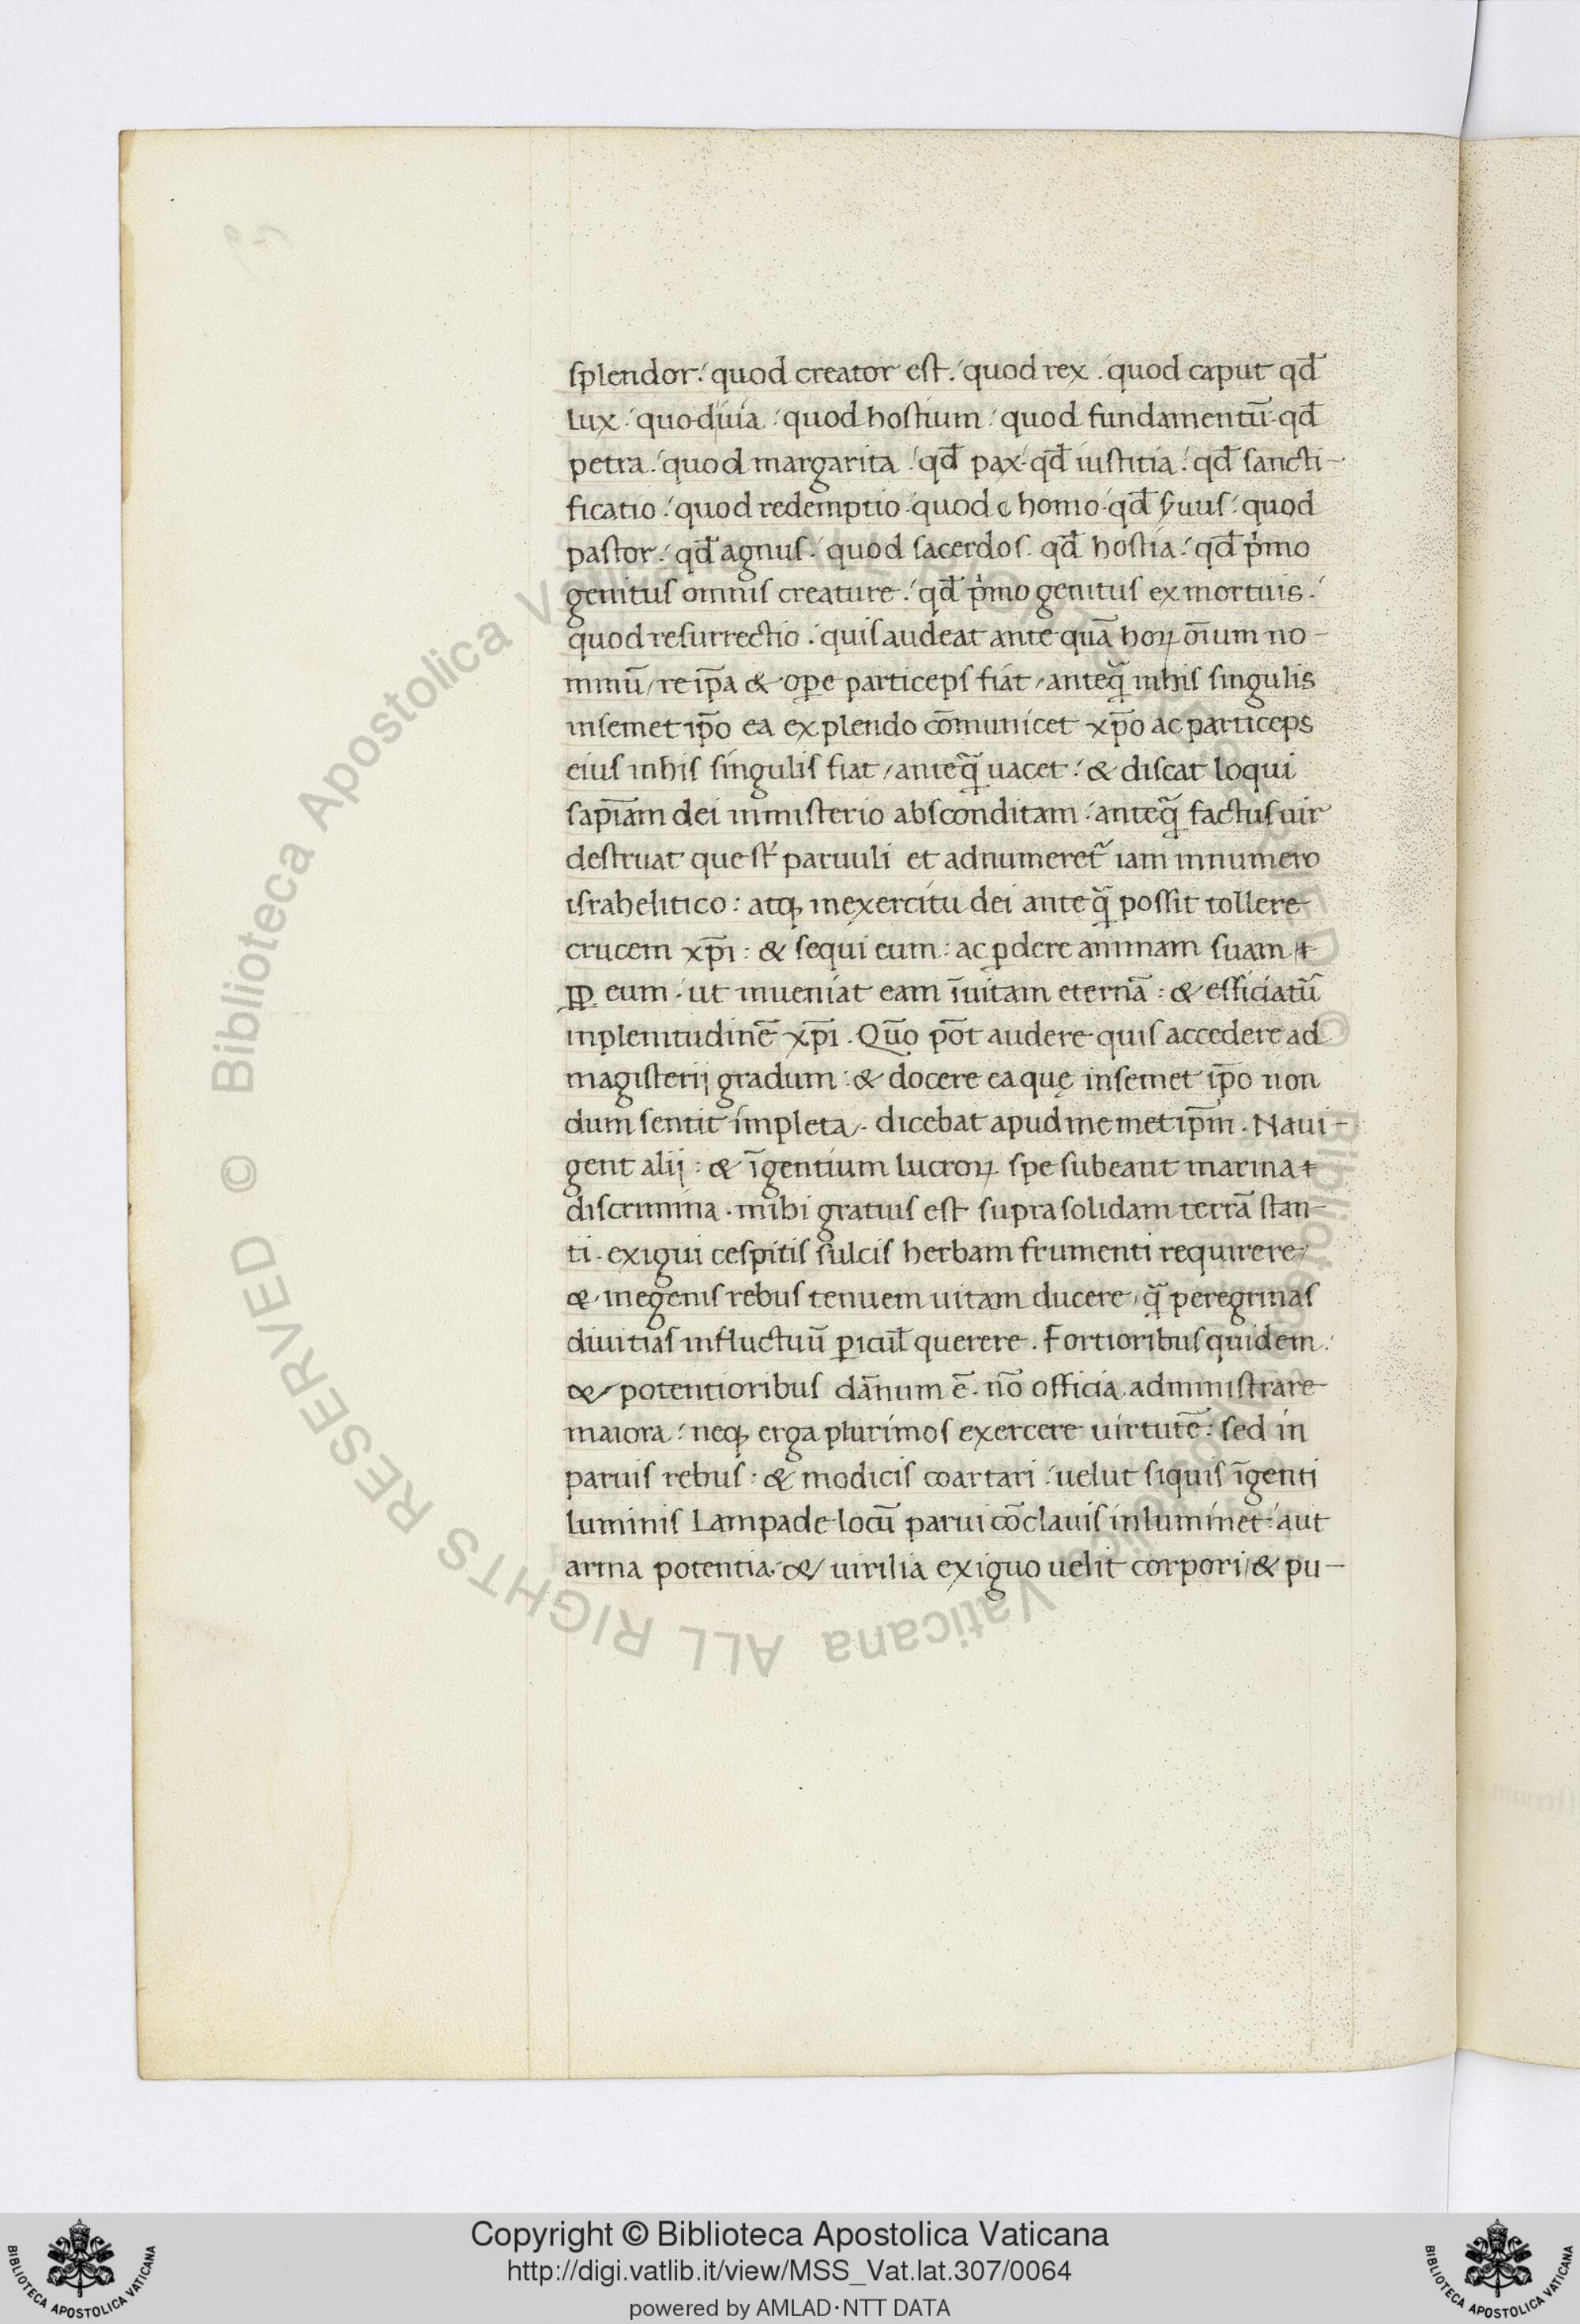 splendor: quod creator est: quod rex. quod caput qd̄
lux. quod uia: quod hostium: quod fundamentū. qd̄
petra: quod margarita: qd̄ pax. qd̄ iustitia: qd̄ sancti-
ficatio: quod redemptio. quod & homo. qd̄ s̄uus: quod
pastor: qd̄ agnus: quod sacerdos. qd̄ hostia: qd̄ pͥmo
genitus omnis creature: qd̄ pͥmo genitus ex mortuis:
quod resurrectio: quis audeat ante quā hoꝝ oīum no-
minū / re ip̄a & oꝑe particeps fiat / anteqͣ̃ in his singulis
in semet ip̄o ea explendo cōmunicet xp̄o ac particeps
eius in his singulis fiat / anteqͣ̃ uacet: & discat loqui
sapīam dei in misterio absconditam: anteqͣ̃ factus uir
destruat que st̄ paruuli et adnumeret᷑ iam in numero
israhelitico: atqꝫ in exercitu dei anteqͣ̃ possit tollere
crucem xp̄i: & sequi eum: ac ꝑdere animam suam
ꝓꝑ eum. ut inueniat eam ī uitam eternā: & efficiatu᷑
in plenitudinē xp̄i. Quō pōt audere quis accedere ad
magisterij gradum: & docere ea quę in semet ip̄o non
dum sentit impleta. dicebat apud memet ip̄m. Naui-
gent alij: & īgentium lucroꝝ spe subeant marina
discrimina. mihi gratius est supra solidam terrā stan-
ti. exigui cespitis sulcis herbam frumenti requirere
& in egenis rebus tenuem uitam ducere / qͣ̃ peregrinas
diuitias in fluctuū ꝑicul̄ querere. Fortioribus quidem.
& potentioribus dānum ē. nō officia administrare
maiora: neqꝫ erga plurimos exercere uirtutē: sed in
paruis rebus: & modicis coartari: uelut siquis īgenti
luminis Lampade locū parui cōclauis inluminet: aut
arma potentia. & uirilia exiguo uelit corpori / & pu-
© Biblioteca Apostolica Vaticana ALL RIGHTS RESERVED
© Biblioteca Apostolica Vaticana ALL RIGHTS RESERVED
Copyright © Biblioteca Apostolica Vaticana
http://digi.vatlib.it/view/MSS_Vat.lat.307/0064
powered by AMLAD·NTT DATA
BIBLIOTECA APOSTOLICA VATICANA
BIBLIOTECA APOSTOLICA VATICANA